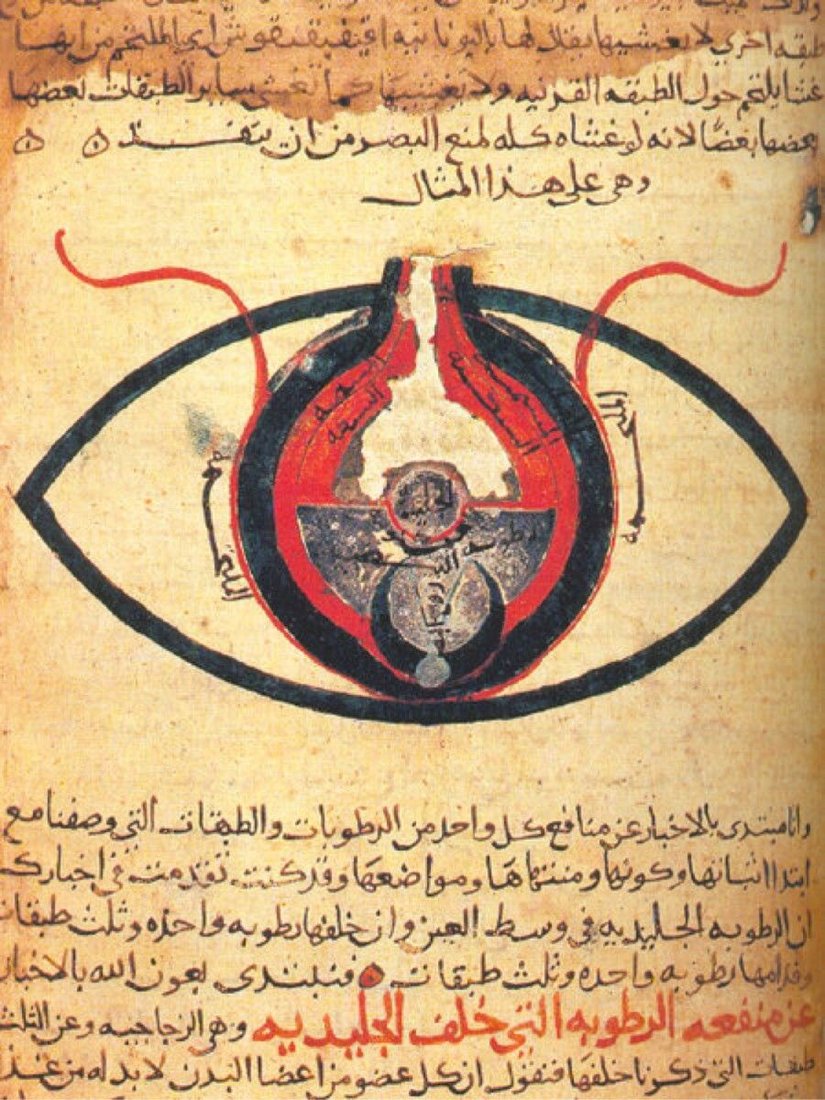 طبقه اخري لا يغشيها يقال لها باليونانيه اي الملتحم من انها
غشا يلتحم حول الطبقه القرنيه ولا يغشيها كما تغشي ساير الطبقات بعضها
بعضها بعضًا لانه لو غشاه كله لمنع البصر من ان ينفذ ه ه
وهي علي هذا المثال
الملتحمه
الملتحمه
الجليديه
رطوبه
وانا مبتدي بالاخبار عن منافع كل واحد من الرطوبات والطبقات التي وصفنا مع
ابتدا اثباتها وكونها ومنتهاها ومواضعها وقد كنت تقدمت في اخبارك
ان الرطوبه الجليديه في وسط العين وان خلفها رطوبه واحده وثلث طبقات
وقدامها رطوبه واحده وثلث طبقات ه فنبتدي بعون الله بالاخبار
عن منفعه الرطوبه التي خلف الجليديه وهي الزجاجيه وعن الثلث
طبقات التي ذكرنا خلفها فنقول ان كل عضو من اعضا البدن لا بد له من غذا